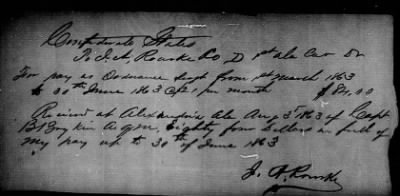 Confederate States
To J. A. Rourke Co D 1st Ala Cav Dr
For pay as Ordnance Sergt from 1st March 1863
to 30th June 1863 @ $21 per month $84.00
Received at Alexandria Ala Aug 5th 1863 of Capt
Eighty four dollars in full of
my pay up to 30th of June 1863
J. A. Rourke